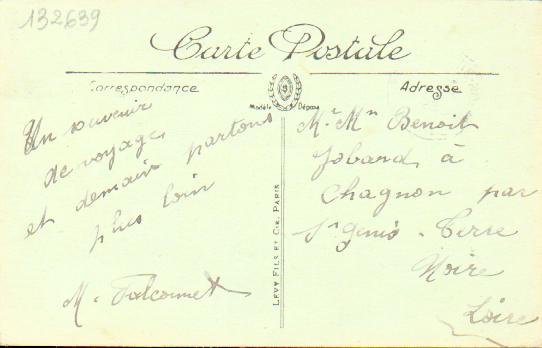 132639
Carte Postale
Correspondance
Adresse
Modèle Déposé
Un souvenir
de voyage,
et demain partons
plus loin
M. Falconnet
LEVY FILS ET CIE, PARIS
Mr Mn Benoit
Jaband à
Chagnon par
St genis - Terre
Noire
Loire